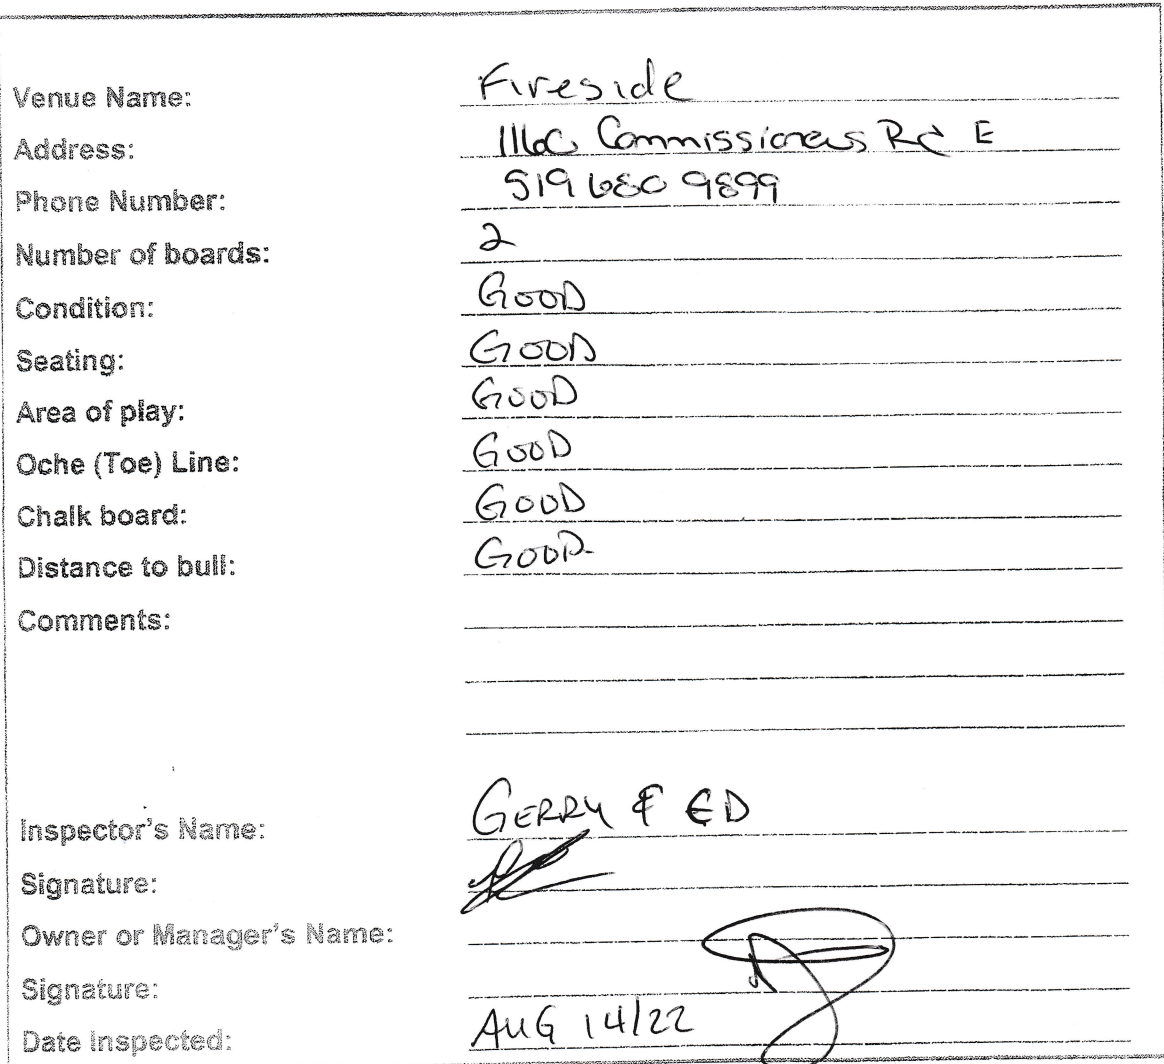 Venue Name: Fireside
Address: 1166 Commissioners Rd E
Phone Number: 519 680 9899
Number of boards: 2
Condition: GOOD
Seating: GOOD
Area of play: GOOD
Oche (Toe) Line: GOOD
Chalk board: GOOD
Distance to bull: GOOD
Comments:
Inspector's Name: GERRY & ED
Signature:
Owner or Manager's Name:
Signature:
Date Inspected: AUG 14/22